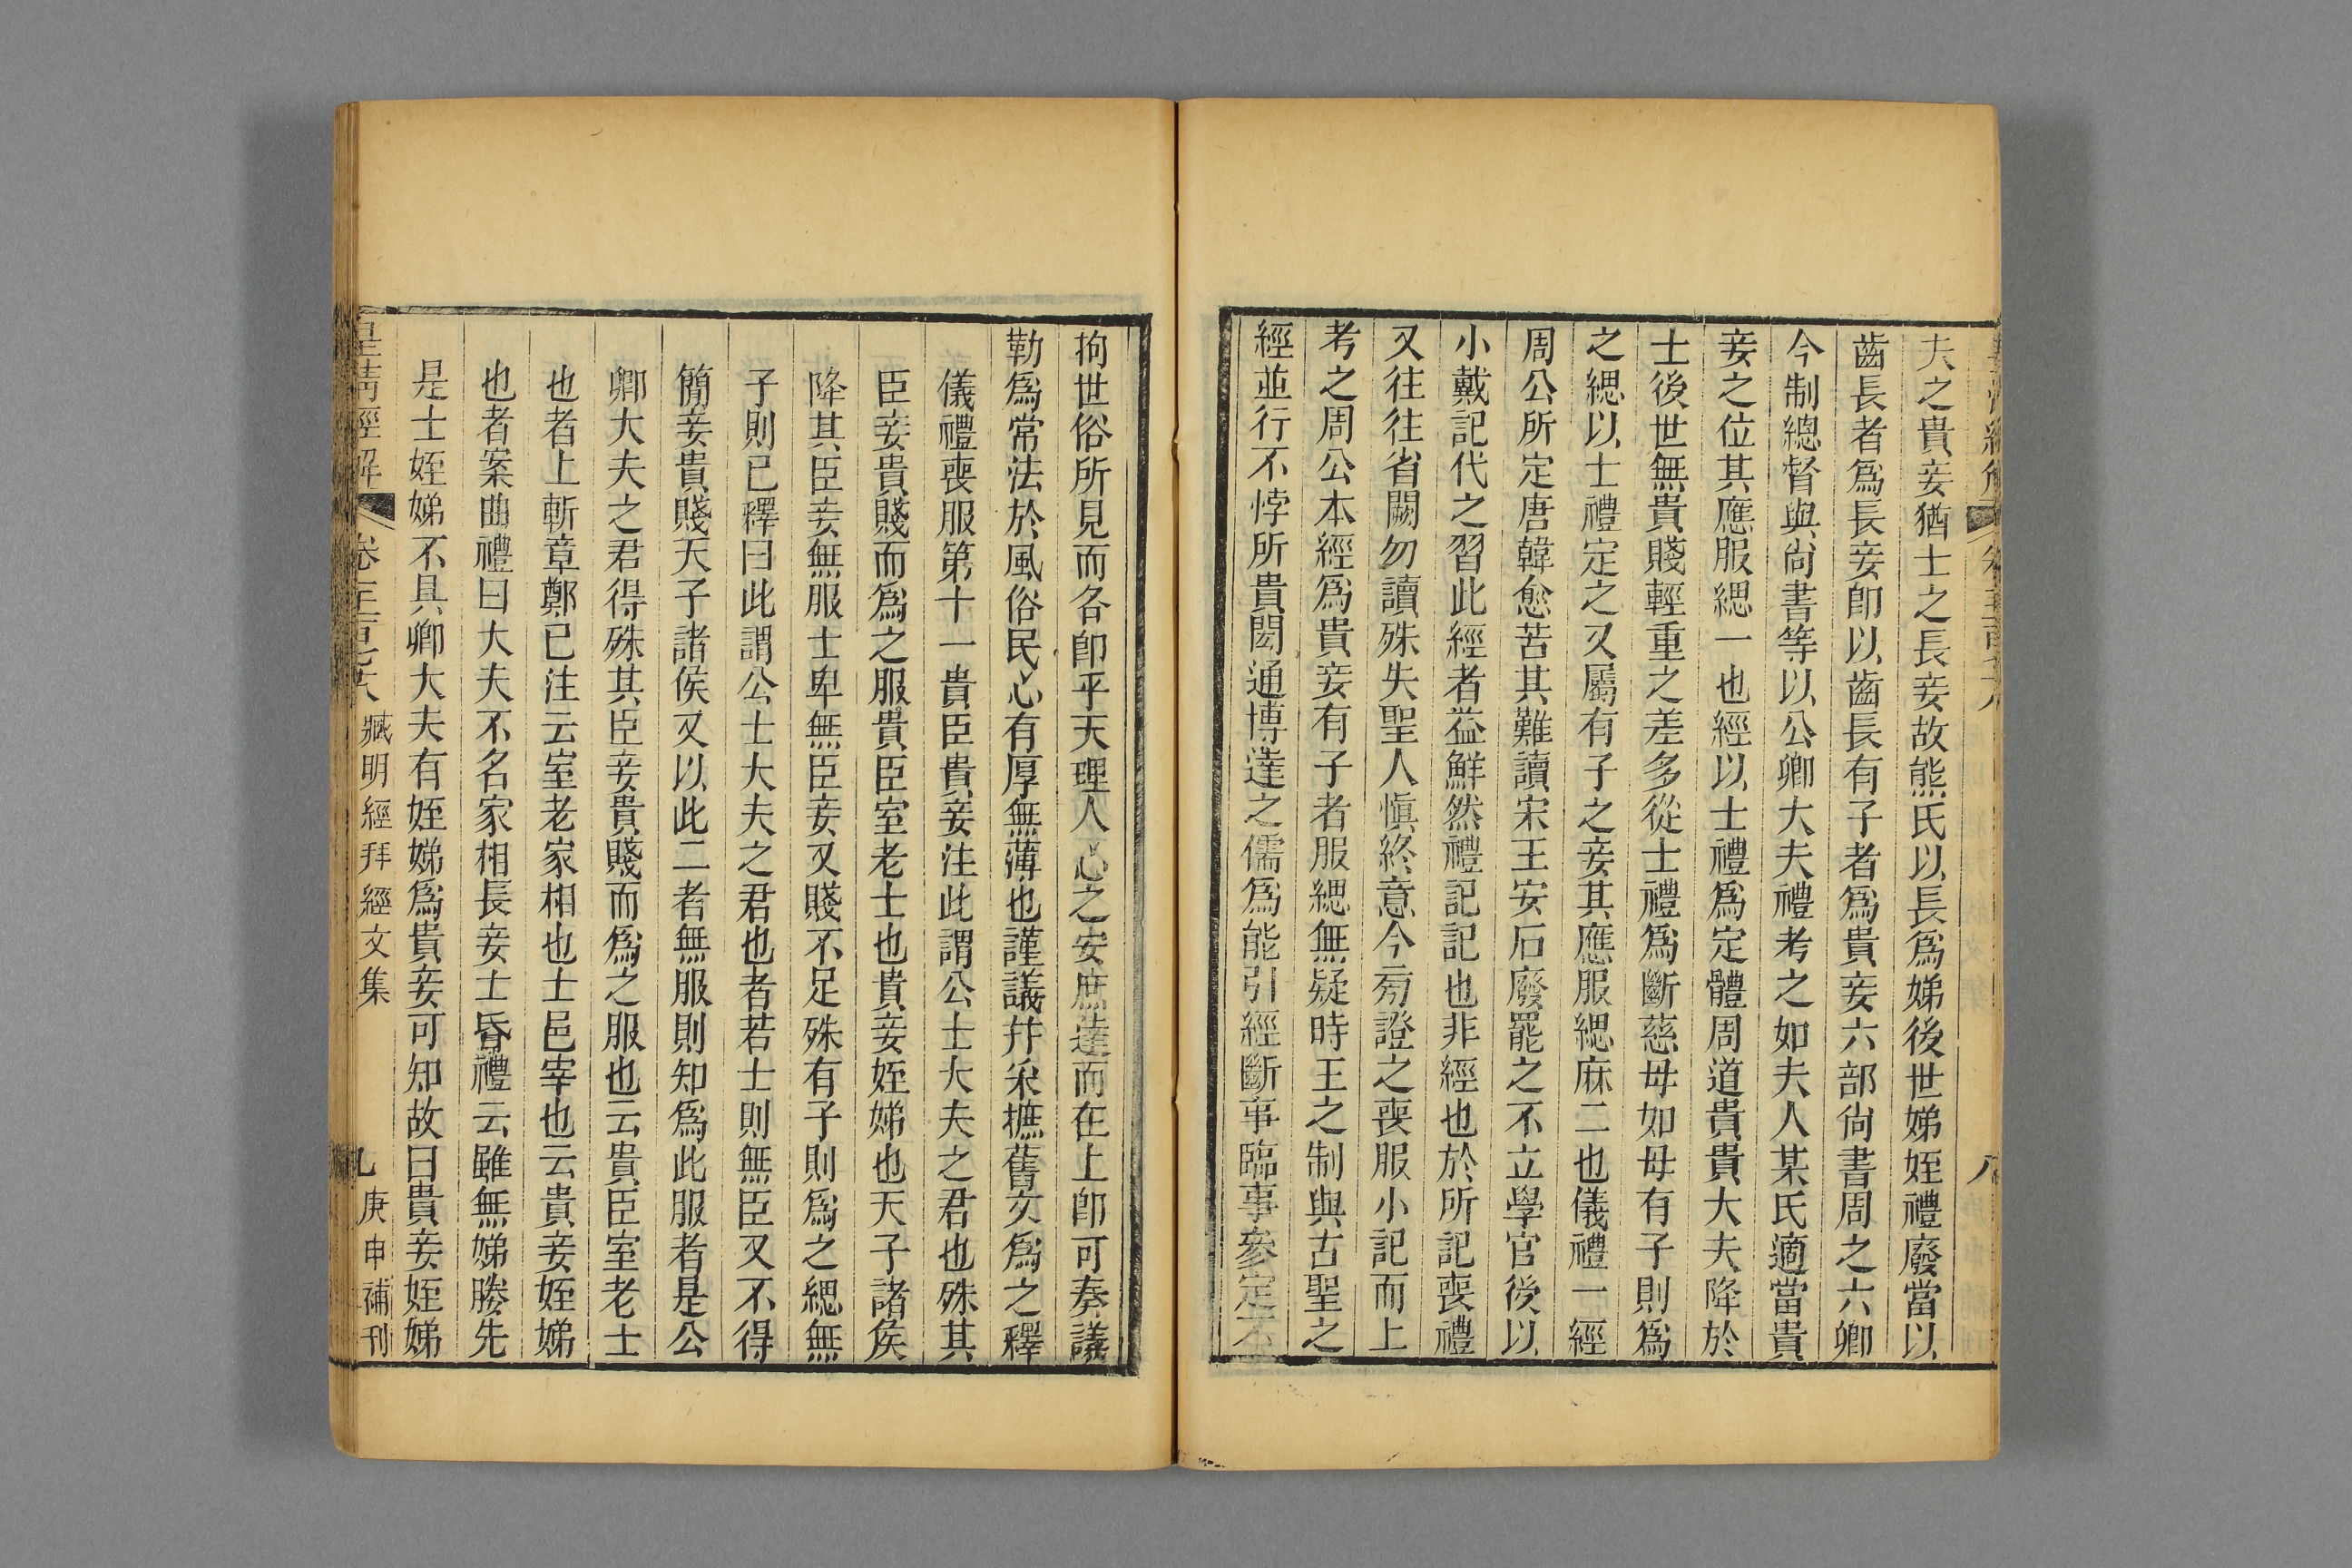 夫之貴妾猶士之長妾故熊氏以長爲娣後世娣姪禮廢當以
齒長者爲長妾卽以齒長有子者爲貴妾六部尙書周之六卿
今制總督與尙書等以公卿大夫禮考之如夫人某氏適當貴
妾之位其應服緦一也經以士禮爲定體周道貴貴大夫降於
士後世無貴賤輕重之差多從士禮爲斷慈母如母有子則爲
之緦以士禮定之又屬有子之妾其應服緦麻二也儀禮一經
周公所定唐韓愈苦其難讀宋王安石廢罷之不立學官後以
小戴記代之習此經者益鮮然禮記記也非經也於所記喪禮
又往往省闕勿讀殊失聖人愼終意今旁證之喪服小記而上
考之周公本經爲貴妾有子者服緦無疑時王之制與古聖之
經並行不悖所貴閎通博達之儒爲能引經斷事臨事參定不
拘世俗所見而各卽乎天理人心之安庶達而在上卽可奏議
勒爲常法於風俗民心有厚無薄也謹議幷釆摭舊文爲之釋
儀禮喪服第十一貴臣貴妾注此謂公士大夫之君也殊其
臣妾貴賤而爲之服貴臣室老士也貴妾姪娣也天子諸侯
降其臣妾無服士卑無臣妾又賤不足殊有子則爲之緦無
子則已釋曰此謂公士大夫之君也者若士則無臣又不得
簡妾貴賤天子諸侯又以此二者無服則知爲此服者是公
卿大夫之君得殊其臣妾貴賤而爲之服也云貴臣室老士
也者上斬章鄭已注云室老家相也士邑宰也云貴妾姪娣
也者案曲禮曰大夫不名家相長妾士昏禮云雖無娣媵先
是士姪娣不具卿大夫有姪娣爲貴妾可知故曰貴妾姪娣
皇淸經解 臧明經拜經文集 九 庚申補刊